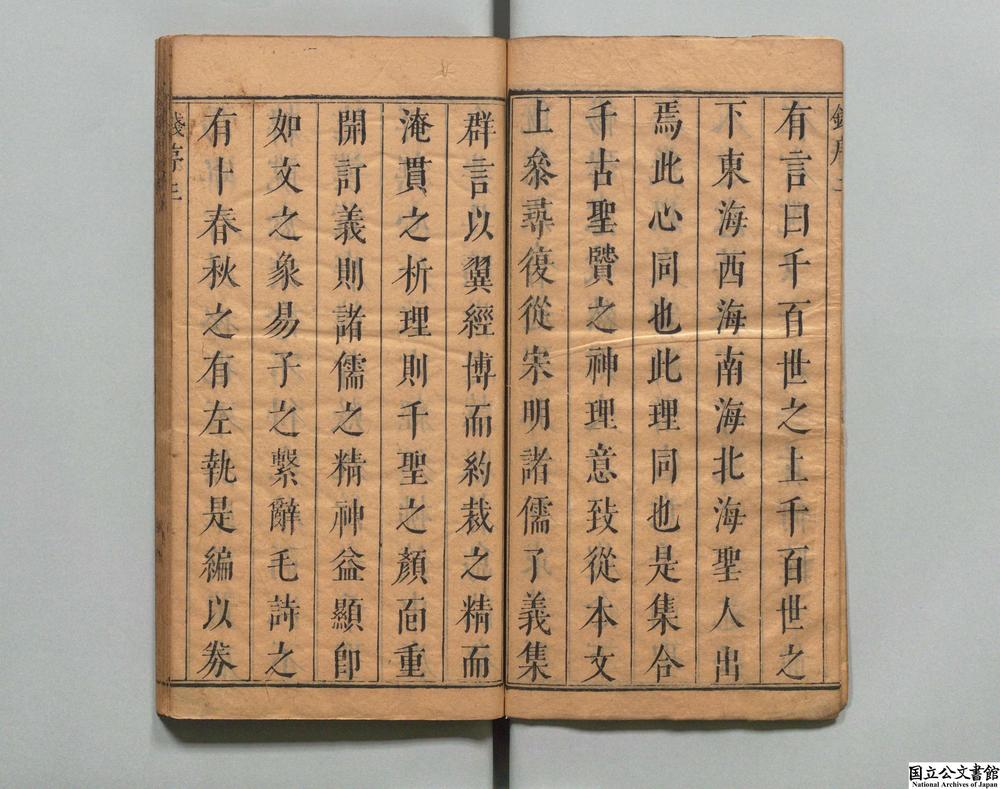 有言曰千百世之上千百世之
下東海西海南海北海聖人出
焉此心同也此理同也是集合
千古聖贒之神理意致從本文
上叅尋復從宋明諸儒了義集
群言以翼經博而約裁之精而
淹貫之析理則千聖之顏靣重
開訂義則諸儒之精神益顯卽
如文之彖易子之繫辭毛詩之
有十春秋之有左執是編以券
錢序三
国立公文書館
National Archives of Japan